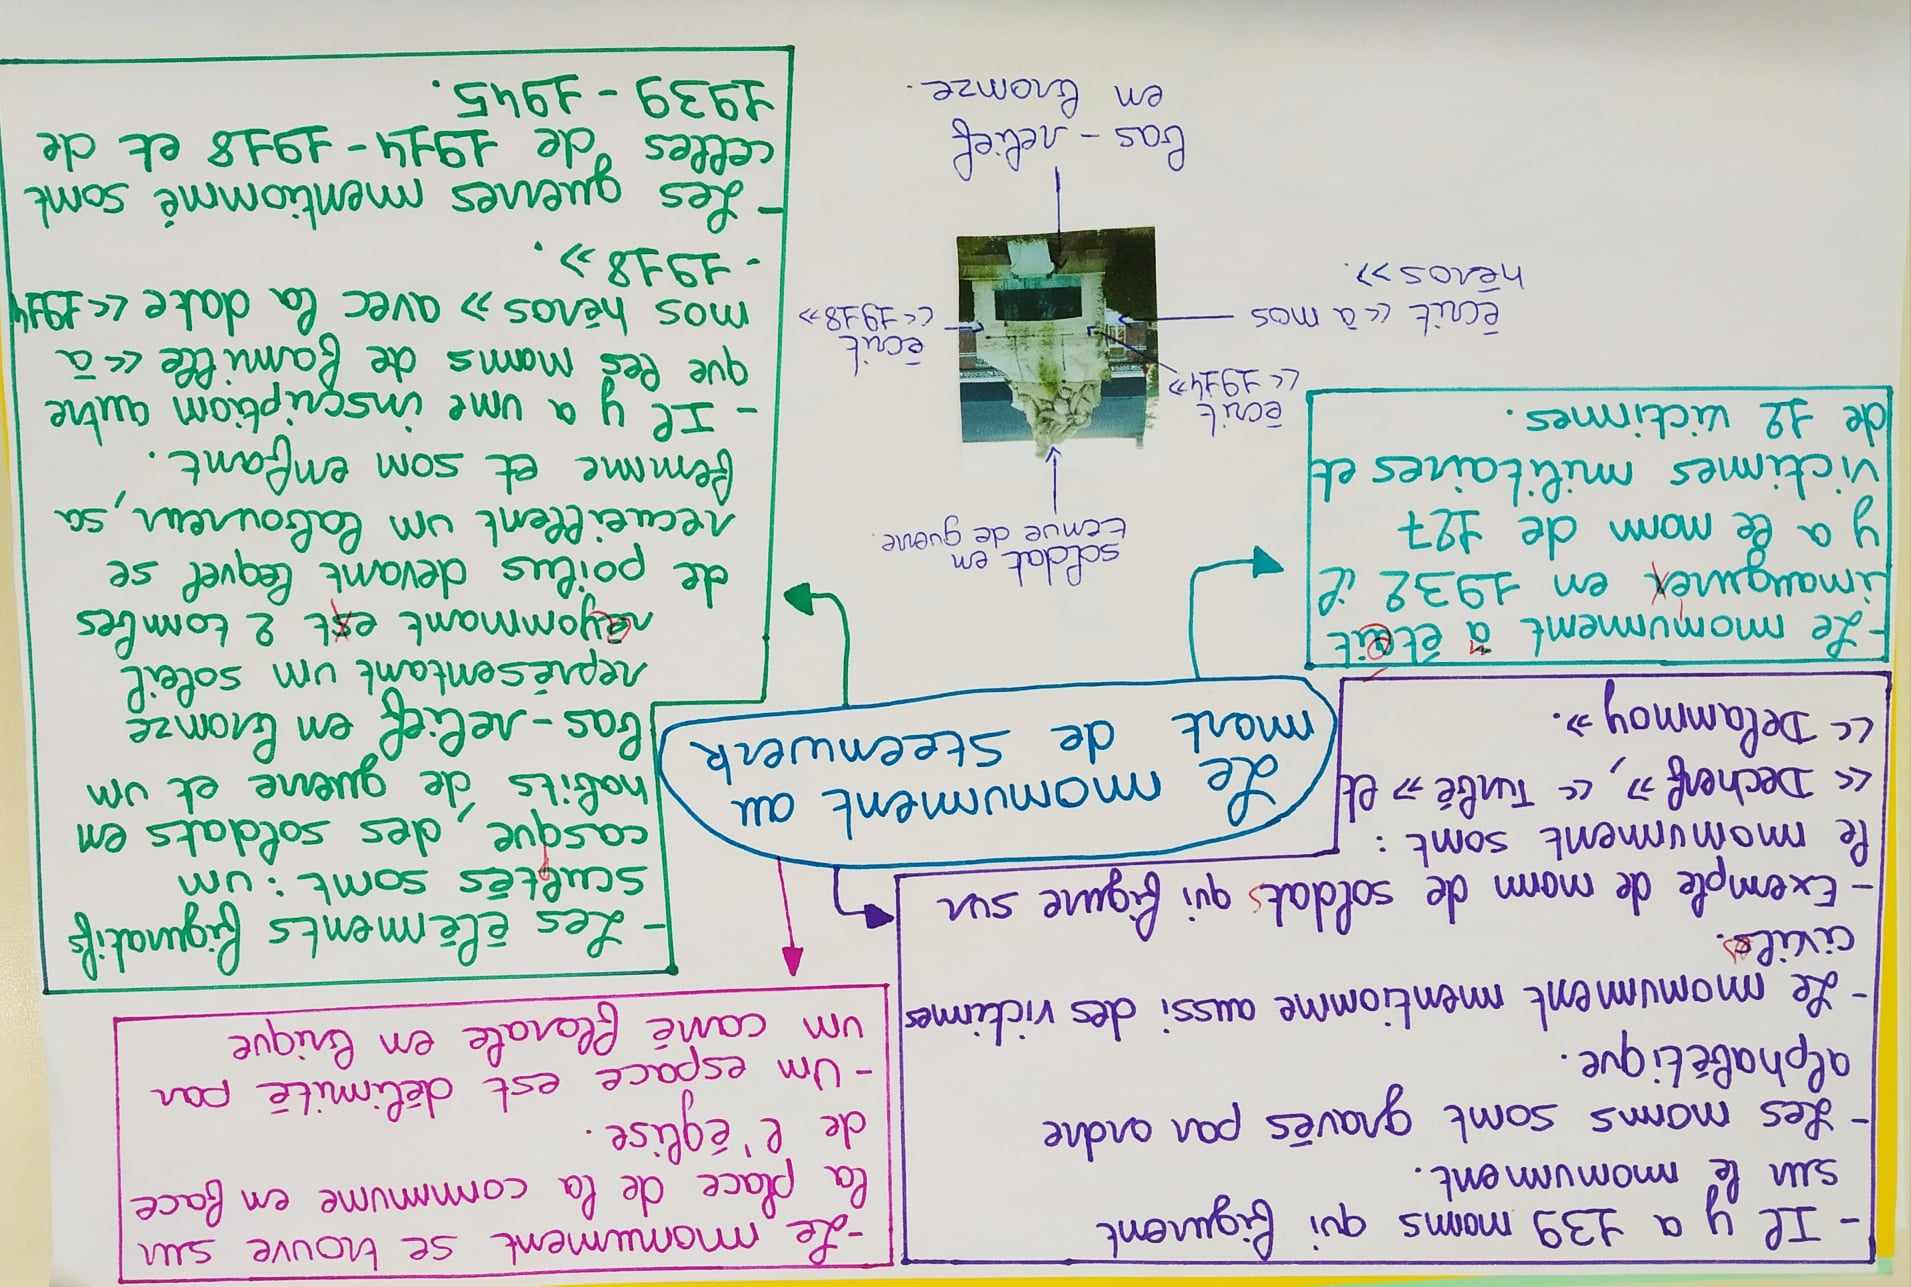 - Il y a 139 noms qui figurent
sur le monument.
- Les noms sont gravés par ordre
alphabétique.
- Le monument mentionne aussi des victimes
civiles.
- Exemple de nom de soldats qui figure sur
le monument sont :
<< Decherf >>, << Turbé >> et
<< Delannoy >>.
- Le monument se trouve sur
la place de la commune en face
de l'église.
- Un espace est délimité par
un carré florale en brique
Le monument au
mort de steenwerk
- Les éléments figuratifs
sculptés sont : un
casque, des soldats en
habits de guerre et un
bas-relief en bronze
représentant un soleil
rayonnant et 2 tombes
de poilus devant lequel se
recueillent un laboureur, sa
femme et son enfant.
- Il y a une inscription autre
que les noms de famille << à
nos héros >> avec la date << 1914
- 1918 >>.
- Les guerres mentionné sont
celles de 1914-1918 et de
1939 - 1945.
- Le monument a était
inaugure en 1932 il
y a le nom de 127
victimes militaires et
de 12 victimes.
soldat en
tenue de guerre.
écrit
<< 1914 >>
écrit << à nos
héros >>.
écrit
<< 1918 >>
bas-relief
en bronze.